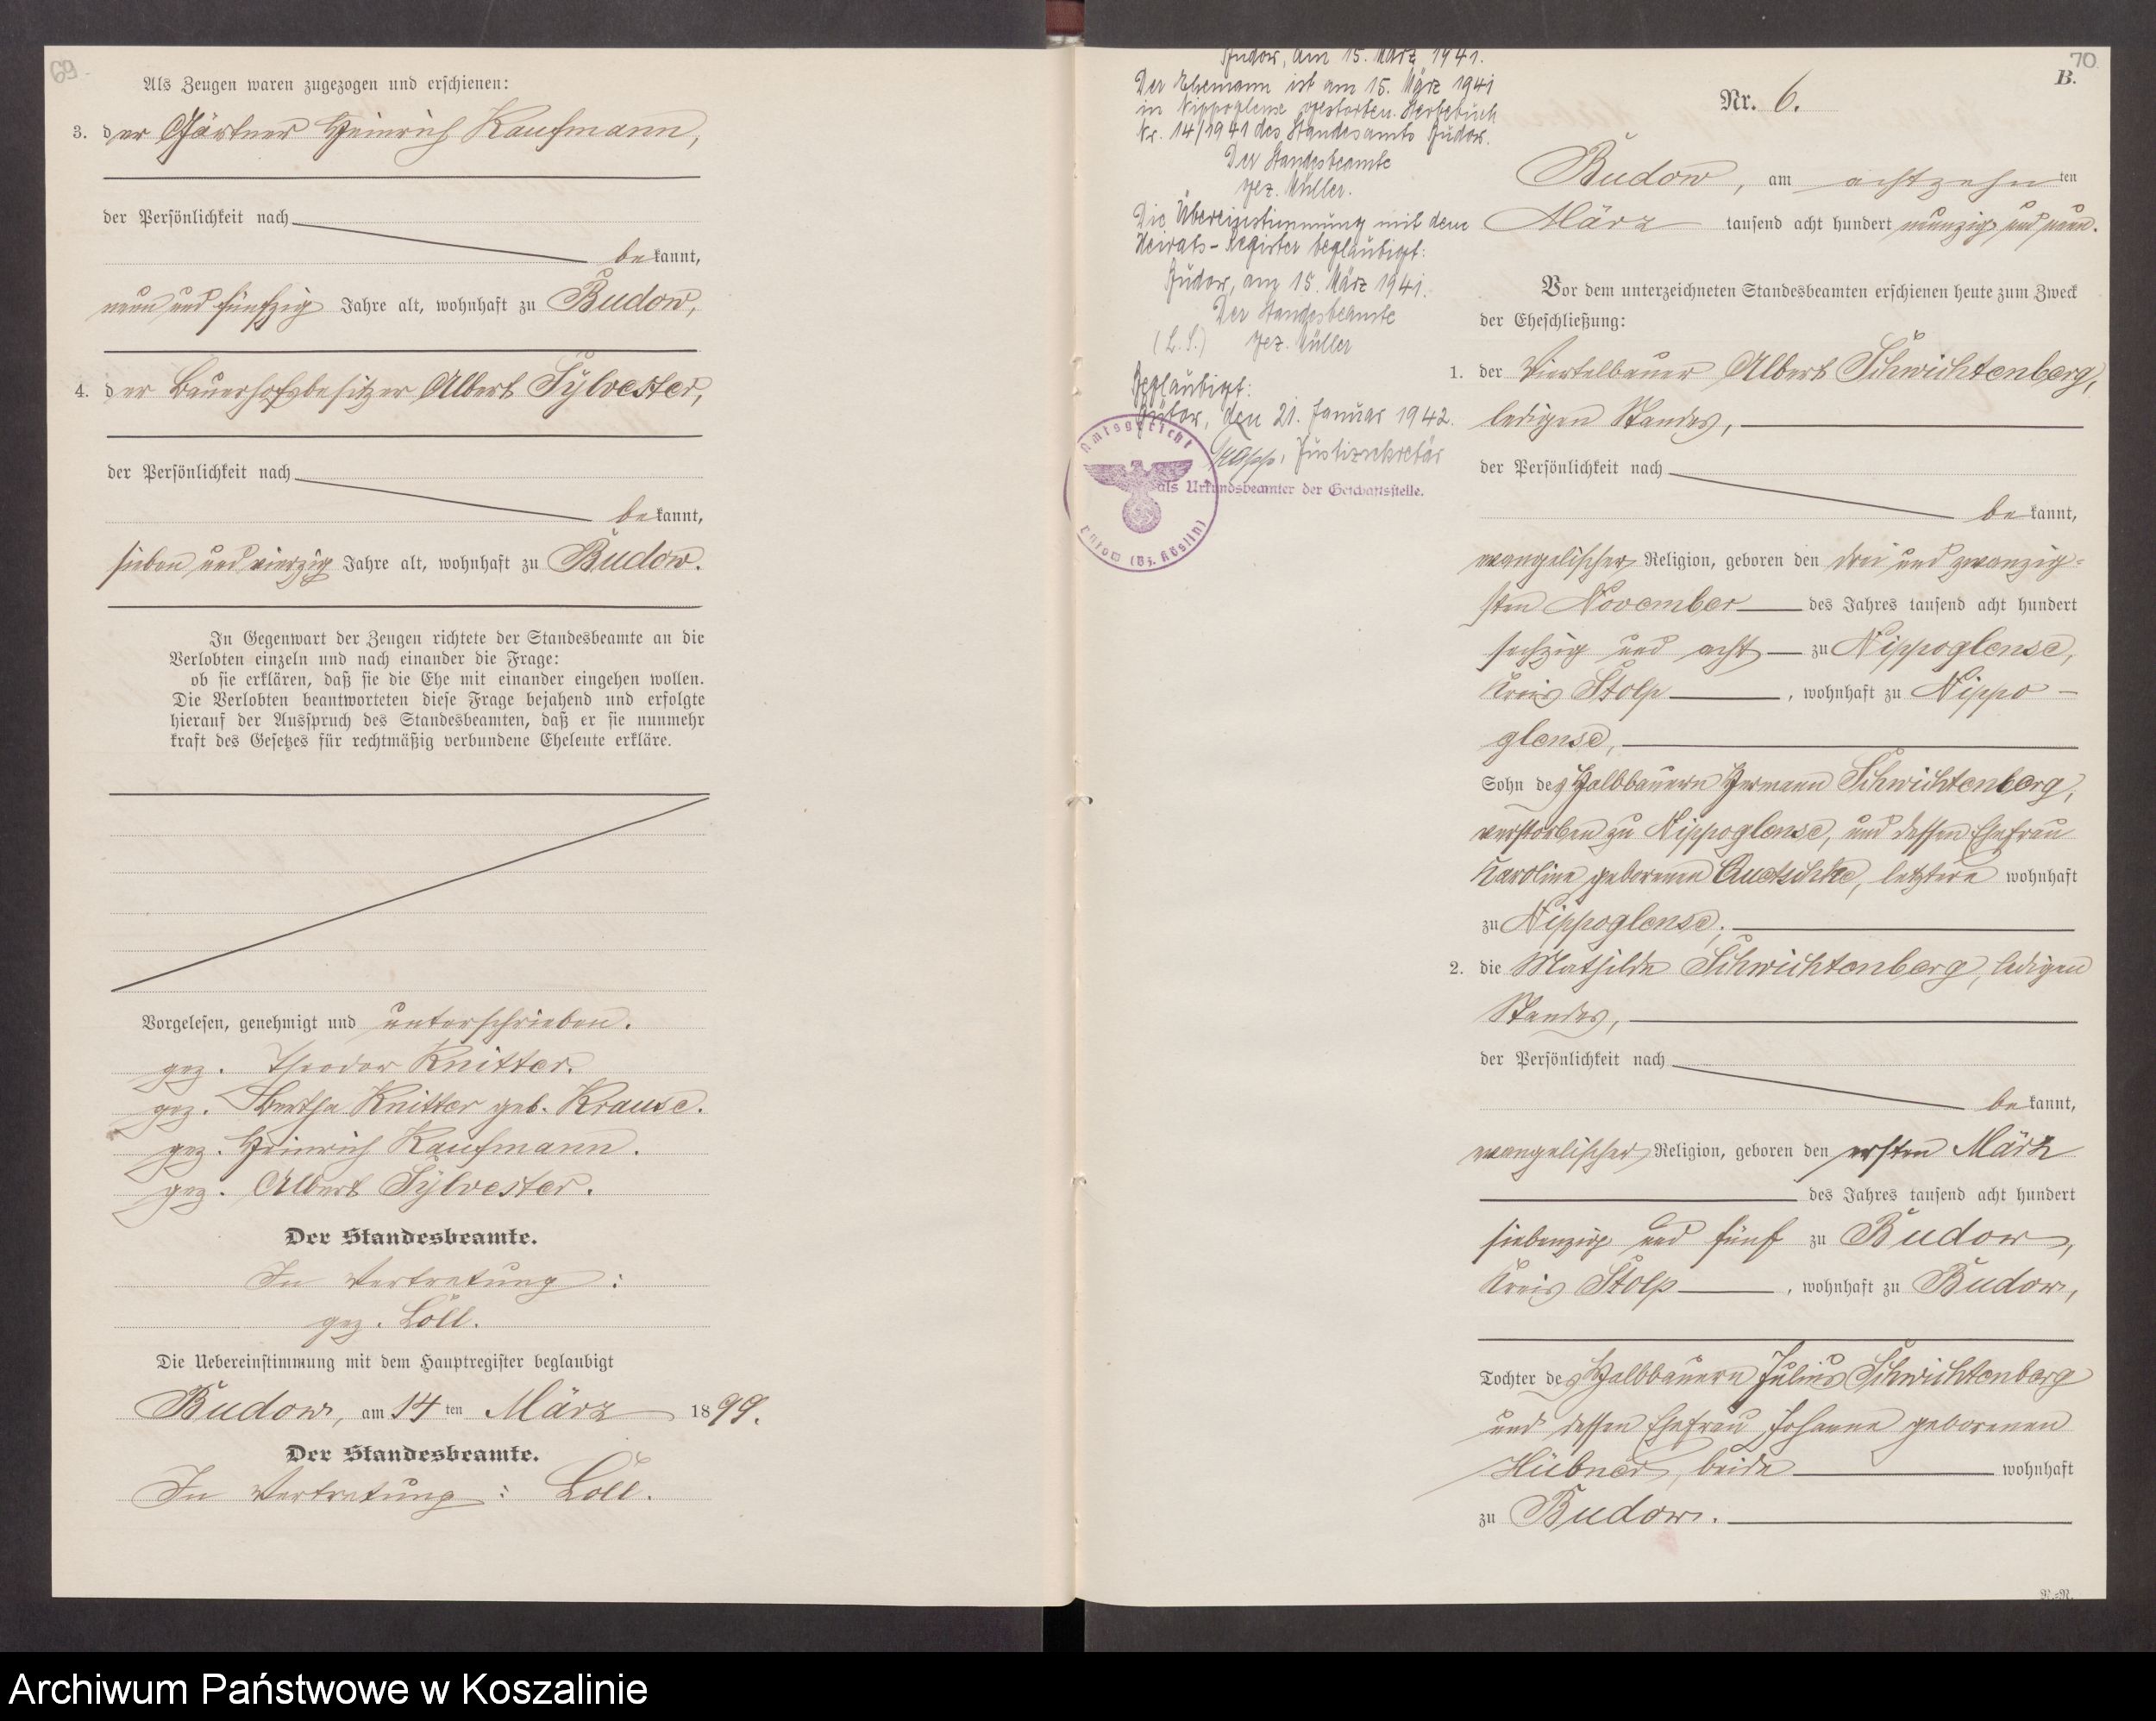 69.
Als Zeugen waren zugezogen und erschienen:
3. der Gärtner Heinrich Kaufmann,
der Persönlichkeit nach
bekannt,
neun und fünfzig Jahre alt, wohnhaft zu Budow,
4. der Bauerhofsbesitzer Albert Sylvester,
der Persönlichkeit nach
bekannt,
sieben und vierzig Jahre alt, wohnhaft zu Budow.
In Gegenwart der Zeugen richtete der Standesbeamte an die
Verlobten einzeln und nach einander die Frage:
ob sie erklären, daß sie die Ehe mit einander eingehen wollen.
Die Verlobten beantworteten diese Frage bejahend und erfolgte
hierauf der Ausspruch des Standesbeamten, daß er sie nunmehr
kraft des Gesetzes für rechtmäßig verbundene Eheleute erkläre.
Vorgelesen, genehmigt und unterschrieben.
gez. Theodor Knitter.
gez. Bertha Knitter geb. Krause.
gez. Heinrich Kaufmann.
gez. Albert Sylvester.
Der Standesbeamte.
In Vertretung:
gez. Löll.
Die Uebereinstimmung mit dem Hauptregister beglaubigt
Budow, am 14 ten März 1899.
Der Standesbeamte.
In Vertretung: Löll.
Budow, am 15. März 1941.
Der Ehemann ist am 15. März 1941
in Nippoglense gestorben. Sterbebuch
Nr. 14/1941 des Standesamts Budow.
Der Standesbeamte
gez. Müller.
Die Übereinstimmung mit dem
Heirats-Register beglaubigt:
Budow, am 15. März 1941.
Der Standesbeamte
(L.S.) gez. Müller
Beglaubigt:
Bütow, den 21. Januar 1942.
Justizsekretär
als Urkundsbeamter der Geschäftsstelle.
Amtsgericht
Bütow (Bz. Köslin)
70
B.
Nr. 6.
Budow, am achtzehn ten
März tausend acht hundert neunzig und neun.
Vor dem unterzeichneten Standesbeamten erschienen heute zum Zweck
der Eheschließung:
1. der Viertelbauer Albert Schwichtenberg,
ledigen Standes,
der Persönlichkeit nach
bekannt,
evangelischer Religion, geboren den drei und zwanzig-
sten November des Jahres tausend acht hundert
sechzig und acht zu Nippoglense,
Kreis Stolp, wohnhaft zu Nippo-
glense,
Sohn des Halbbauern Hermann Schwichtenberg,
verstorben zu Nippoglense, und dessen Ehefrau
Karoline geborenen Quetschke, letztere wohnhaft
zu Nippoglense;
2. die Mathilde Schwichtenberg, ledigen
Standes,
der Persönlichkeit nach
bekannt,
evangelischer Religion, geboren den ersten März
des Jahres tausend acht hundert
siebenzig und fünf zu Budow,
Kreis Stolp, wohnhaft zu Budow,
Tochter des Halbbauern Julius Schwichtenberg
und dessen Ehefrau Johanne geborenen
Hübner, beide wohnhaft
zu Budow.
R.=R.
Archiwum Państwowe w Koszalinie